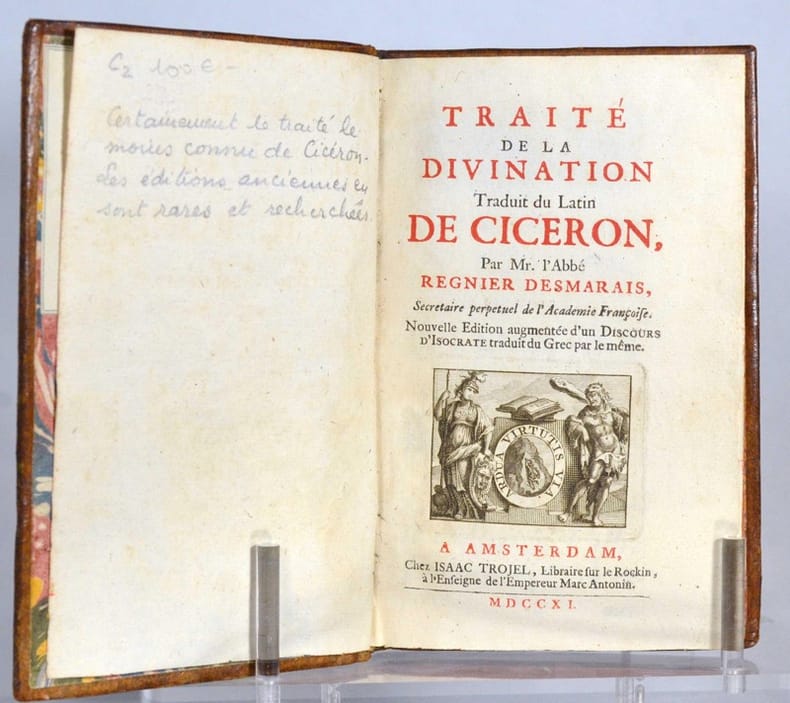 C2 100 € -
Certainement le traité le
moins connu de Cicéron.
Les éditions anciennes en
sont rares et recherchées.
TRAITÉ
DE LA
DIVINATION
Traduit du Latin
DE CICERON,
Par Mr. l'Abbé
REGNIER DESMARAIS,
Secretaire perpetuel de l'Academie Françoiſe.
Nouvelle Edition augmentée d'un DISCOURS
D'ISOCRATE traduit du Grec par le même.
ARDUA VIRTUTIS VIA
À AMSTERDAM,
Chez ISAAC TROJEL, Libraire ſur le Rockin,
à l'Enſeigne de l'Empereur Marc Antonin.
MDCCXI.